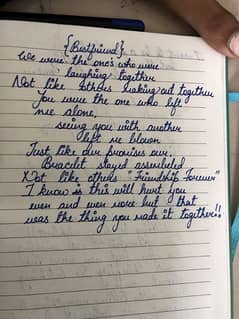 {Bestfriend}
We were the one's who were
laughing together
Not like others making out together
You were the one who left
me alone,
seeing you with another
left me blown
Just like our promises our
Bracelet stayed assembeled
Not like others "Friendship Forever"
I know is this will hurt you
even and even more but that
was the thing you made it together!!